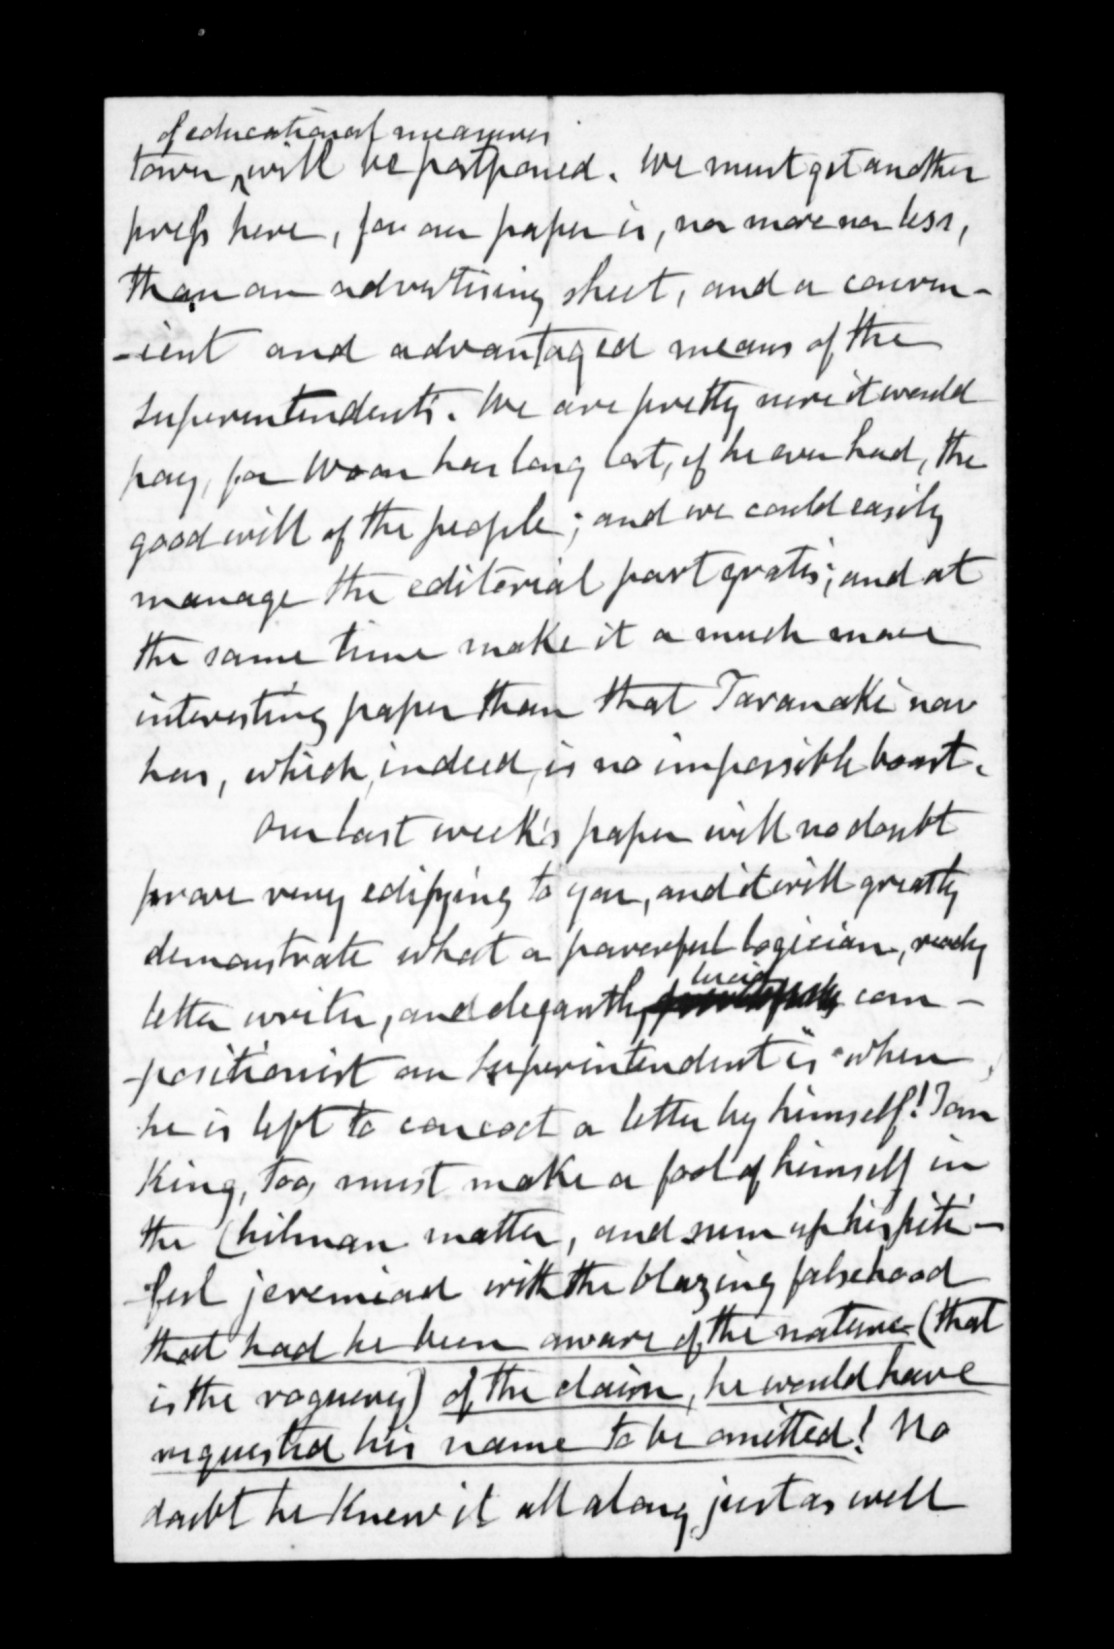 of educational measures
town ^ will be postponed. We must get another
press here, for our paper is, nor more nor less,
than an advertising sheet, and a conven-
-ient and advantaged means of the
Superintendents. We are pretty sure it would
pay, for Woon has long lost, if he ever had, the
good will of the people; and we could easily
manage the editorial part gratis; and at
the same time make it a much more
interesting paper than that Taranaki now
has, which, indeed, is no impossible boast.
Our last week's paper will no doubt
prove very edifying to you, and it will greatly
demonstrate what a powerful logician, ready
lucid
letter writer, and elegant, com-
-positionist our Superintendent is "when
he is left to concoct a letter by himself! Tom
King, too, must make a fool of himself in
the Chilman matter, and sum up his piti-
-ful jeremiad with the blazing falsehood
that had he been aware of the nature (that
is the roguery) of the claim, he would have
requested his name to be omitted! No
doubt he knew it all along just as well